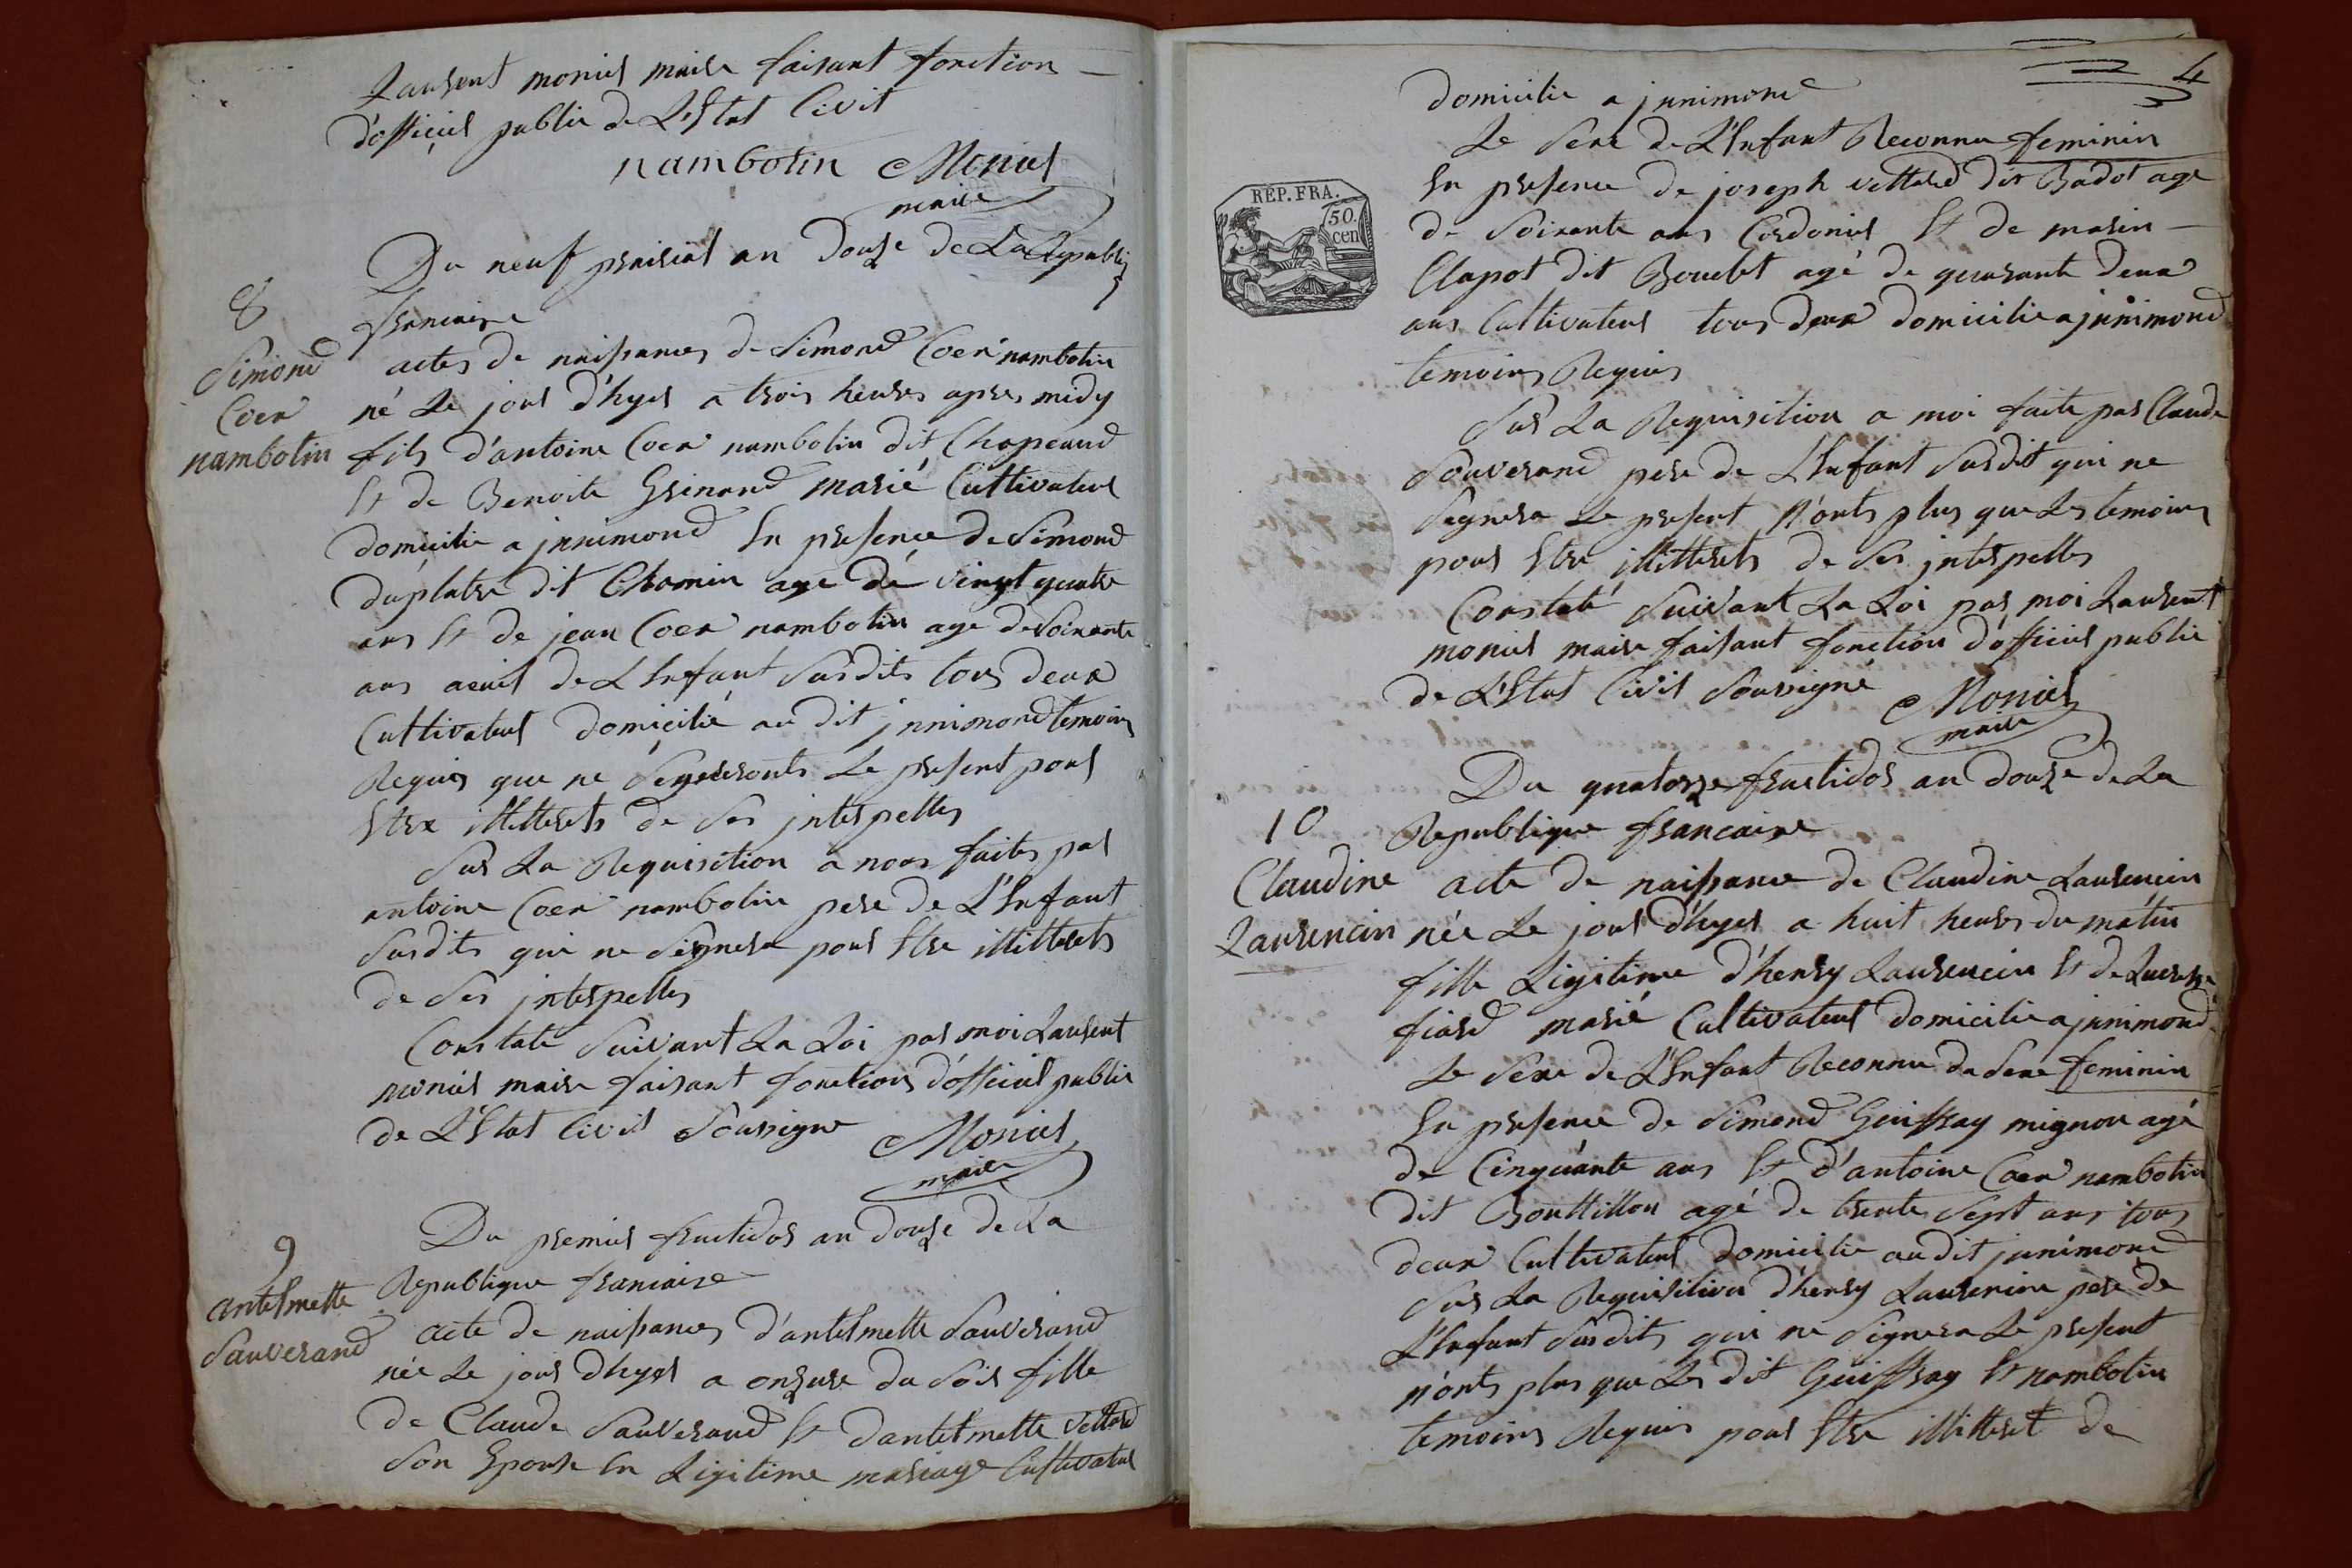 Laurent monier maire faisant fonction
d'officier public de L'Etat Civil
nambotin Monier
maire
Du neuf prairial an Douze de La Republi
francaise
8
Simond
Coer
nambotin
actes de naissances de Simond Coer nambotin
né Le jour d'hyer a trois heures apres midy
fils d'antoine Coer nambotin dit Chapeaud
Et de Benoite Grinand marié Cultivateur
domicilie a junimond En presence de Simond
duplatre dit Chomin age de vingt quatre
ans Et de jean Coer nambotin age de Soixante
ans aeuil de L'Enfant Susdits tous deux
Cultivateur domicilié au dit junimond temoins
Requis que ne Signeronts Le present pour
Etre illitterets de Ses interpelles
Sur La Requisition a nous faites par
antoine Coer nambotin pere de L'Enfant
Susdits qui ne Signera pour Etre illitterets
de Ses interpelles
Constate Suivant La Loi par moi Laurent
monier maire faisant fonctions d'officier public
de L'Etat Civil Soussigne Monier
maire
Du premier fructidor an douze de La
Republique francaise
9
antelmette
Sauverand
acte de naissances d'antelmette Sauverand
née Le jour d'hyer a onzeure du Soir fille
de Claude Sauverand Et dantelmette vettard
Son Epouse En Ligitime mariage Cultivateur
4
domicilie a junimond
Le Sexe de L'Enfant Reconnu feminin
REP. FRA.
50.
cen
En presence de joseph vettard dit Badot age
de Soixante ans Cordonier Et de marin
Clapot dit Bouclet agé de quarante deux
ans Cultivateur tous deux domicilie a junimond
temoins Requis
Sur La Requisition a moi faite par Claude
Souverand pere de L'Enfant Susdit qui ne
Segnera Le present N'onts plus que Les temoins
pour Etre illitterets de Ses interpelles
Constaté Suivant La Loi par moi Laurent
monier maire faisant fonction d'officier public
de L'Etat Civil Sousigné Monier
maire
Du quatorze fructidor an douze de La
Republique francaise
10
Claudine
Laurencin
acte de naissance de Claudine Laurencin
née Le jour d'hyer a huit heures du matin
fille Ligitime d'henry Laurencin Et de
fiard marié Cultivateur domicilie a junimond
Le Sexe de L'Enfant Reconnu du Sexe feminin
En presence de Simond Guiffray mignon agé
de Cinquante ans Et d'antoine Coer nambotin
dit Bouttillon agé de trente Sept ans tous
deux Cultivateur domicilie audit junimond
Sur La Requisition d'henry Laurencin pere de
L'Enfant Susdits qui ne Signera Le present
n'onts plus que Les dit Guiffray Et nambotin
temoins Requis pour Etre illitteret de